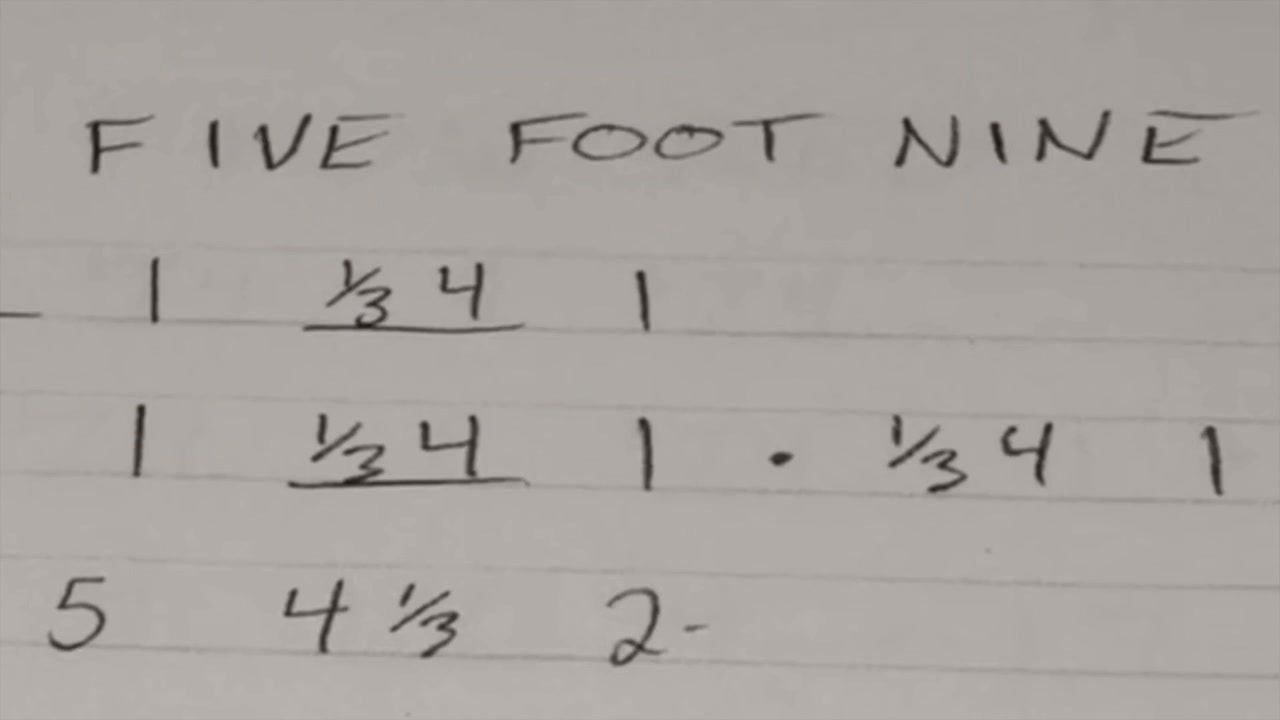 FIVE FOOT NINE
– 1 ⅓ 4 1
1 ⅓ 4 1 • ⅓ 4 1
5 4 ⅓ 2-